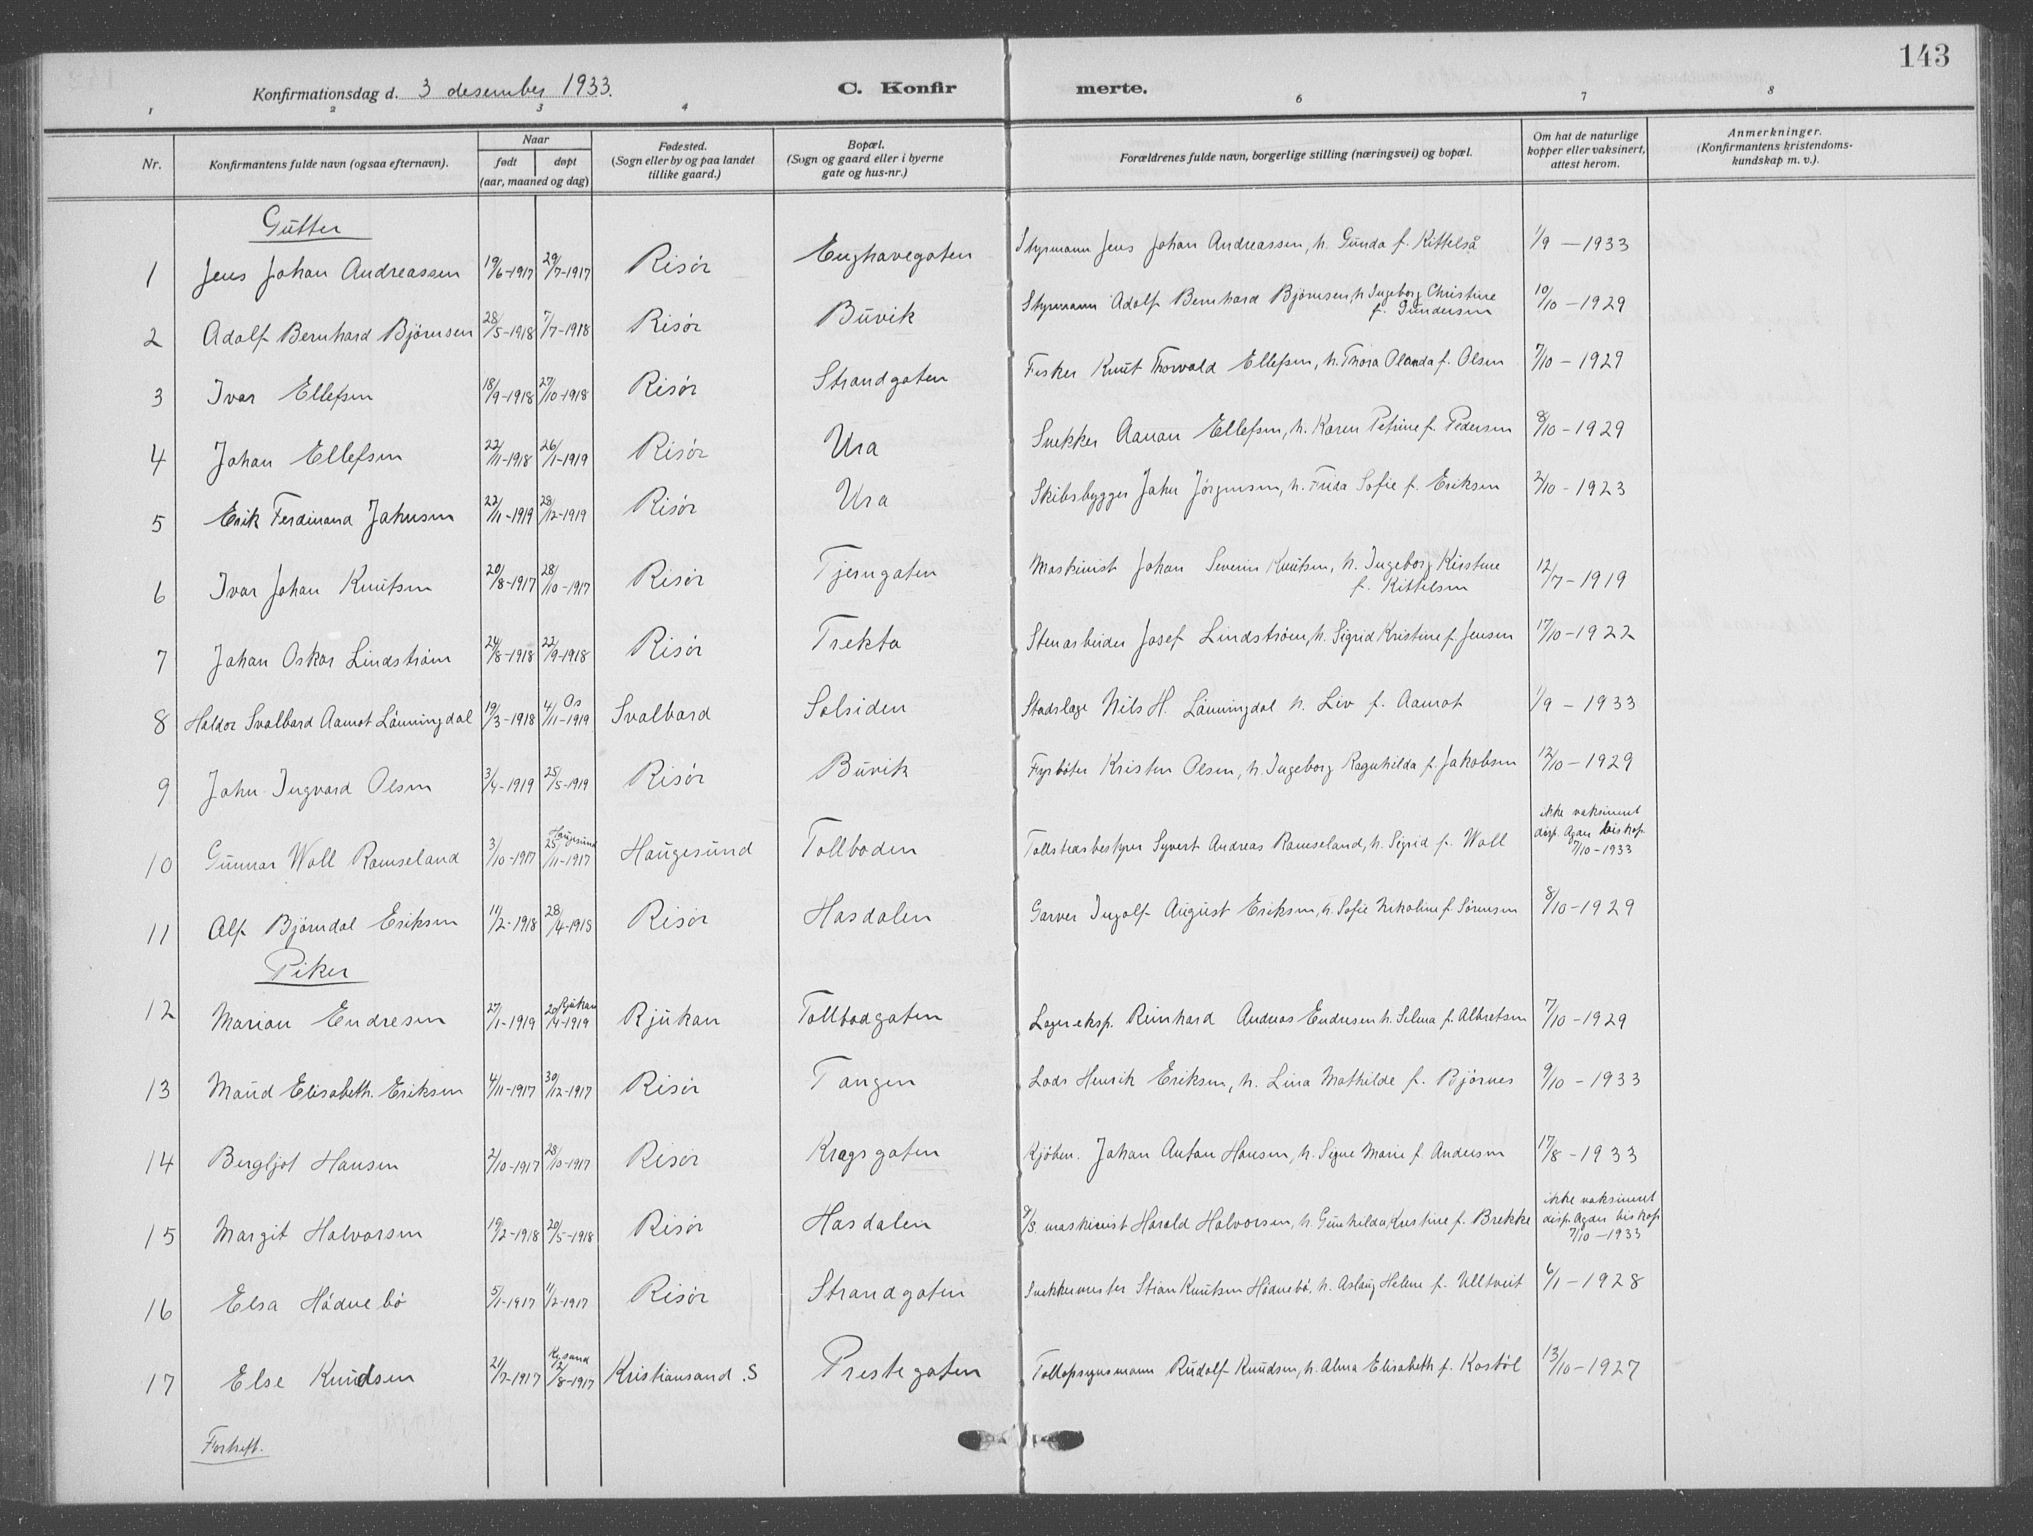 143
Konfirmationsdag d. 3 desember 1933.
C. Konfir merte.
1 2 3 4 6 7 8
Nr.
Konfirmantens fulde navn (ogsaa efternavn).
Naar
født døpt
(aar, maaned og dag)
Fødested.
(Sogn eller by og paa landet
tillike gaard.)
Bopæl.
(Sogn og gaard eller i byerne
gate og hus-nr.)
Forældrenes fulde navn, borgerlige stilling (næringsvei) og bopæl.
Om hat de naturlige
kopper eller vaksinert,
attest herom.
Anmerkninger.
(Konfirmantens kristendoms-
kundskap m. v.).
Gutter
1 Jens Johan Andreassen 19/6-1917 29/7-1917 Risör Enghavegaten Styrmann Jens Johan Andreassen, h. Gunda f. Kittelså 1/9 - 1933
2 Adolf Bernhard Björnsen 28/5-1918 7/7-1918 Risör Buvik Styrmann Adolf Bernhard Björnsen, h. Ingeborg Christine
f. Gundersen 10/10 - 1929
3 Ivar Ellefsen 18/9-1918 27/10-1918 Risör Strandgaten Fisker Knut Thorvald Ellefsen, h. Thora Olanda f. Olsen 7/10 - 1929
4 Johan Ellefsen 22/11-1918 26/1-1919 Risör Ura Snekker Aanon Ellefsen, h. Karen Petrine f. Pedersen 8/10 - 1929
5 Erik Ferdinand Johnsen 22/11-1919 28/12-1919 Risör Ura Skibsbygger John Jörgensen, h. Frida Sofie f. Eriksen 2/10 - 1923
6 Ivar Johan Knutsen 20/8-1917 28/10-1917 Risör Tjerngaten Maskinist Johan Severin Knutsen, h. Ingeborg Kirstine
f. Kittelsen 12/7 - 1919
7 Johan Oskar Lindström 24/8-1918 22/9-1918 Risör Trekta Stenarbeider Josef Lindström, h. Sigrid Kristine f. Jensen 17/10 - 1922
8 Haldor Svalbard Aamot Lönningdal 19/3-1918 Os 4/11-1919 Svalbard Solsiden Stadslæge Nils H. Lönningdal h. Liv f. Aamot 1/9 - 1933
9 John Ingvard Olsen 3/4-1919 25/5-1919 Risör Buvik Fyrböter Kristen Olsen, h. Ingeborg Ragnhilda f. Jakobsen 12/10 - 1929
10 Gunnar Wall Ramseland 3/10-1917 Haugesund 25/11-1917 Haugesund Tollboden Tollstedsbestyrer Syvert Andreas Ramseland, h. Sigrid f. Wall ikke vaksinert
disp. Agder biskop
7/10 - 1933
11 Alf Björndal Eriksen 11/2-1918 28/4-1918 Risör Hasdalen Garver Ingolf August Eriksen, h. Sofie Nikoline f. Sörensen 8/10 - 1929
Piker
12 Marion Endresen 27/1-1919 Rjukan 20/4-1919 Rjukan Tollbodgaten Lagereksp. Reinhard Andreas Endresen h. Selma f. Albretsen 7/10 - 1929
13 Maud Elisabeth Eriksen 4/11-1917 30/12-1917 Risör Tangen Lods Henrik Eriksen, h. Lina Mathilde f. Björnes 9/10 - 1933
14 Bergljot Hansen 2/10-1917 28/10-1917 Risör Kragsgaten Kjöbm. Johan Anton Hansen, h. Signe Marie f. Andersen 17/8 - 1933
15 Margit Halvorsen 19/2-1918 20/5-1918 Risör Hasdalen maskinist Harald Halvorsen, h. Gunhilda Kristine f. Brekke ikke vaksinert
disp. Agder biskop
7/10 - 1933
16 Elsa Hödnebö 5/1-1917 11/2-1917 Risör Strandgaten Snekkermester Stian Knutsen Hödnebö, h. Aslaug Helene f. Ulltveit 6/1 - 1928
17 Else Knudsen 21/7-1917 Kr.sand 12/8-1917 Kristiansand. S Prestegaten Tollopsynsmann Rudolf Knudsen, h. Alma Elisabeth f. Kastöl 13/10 - 1927
Forts.